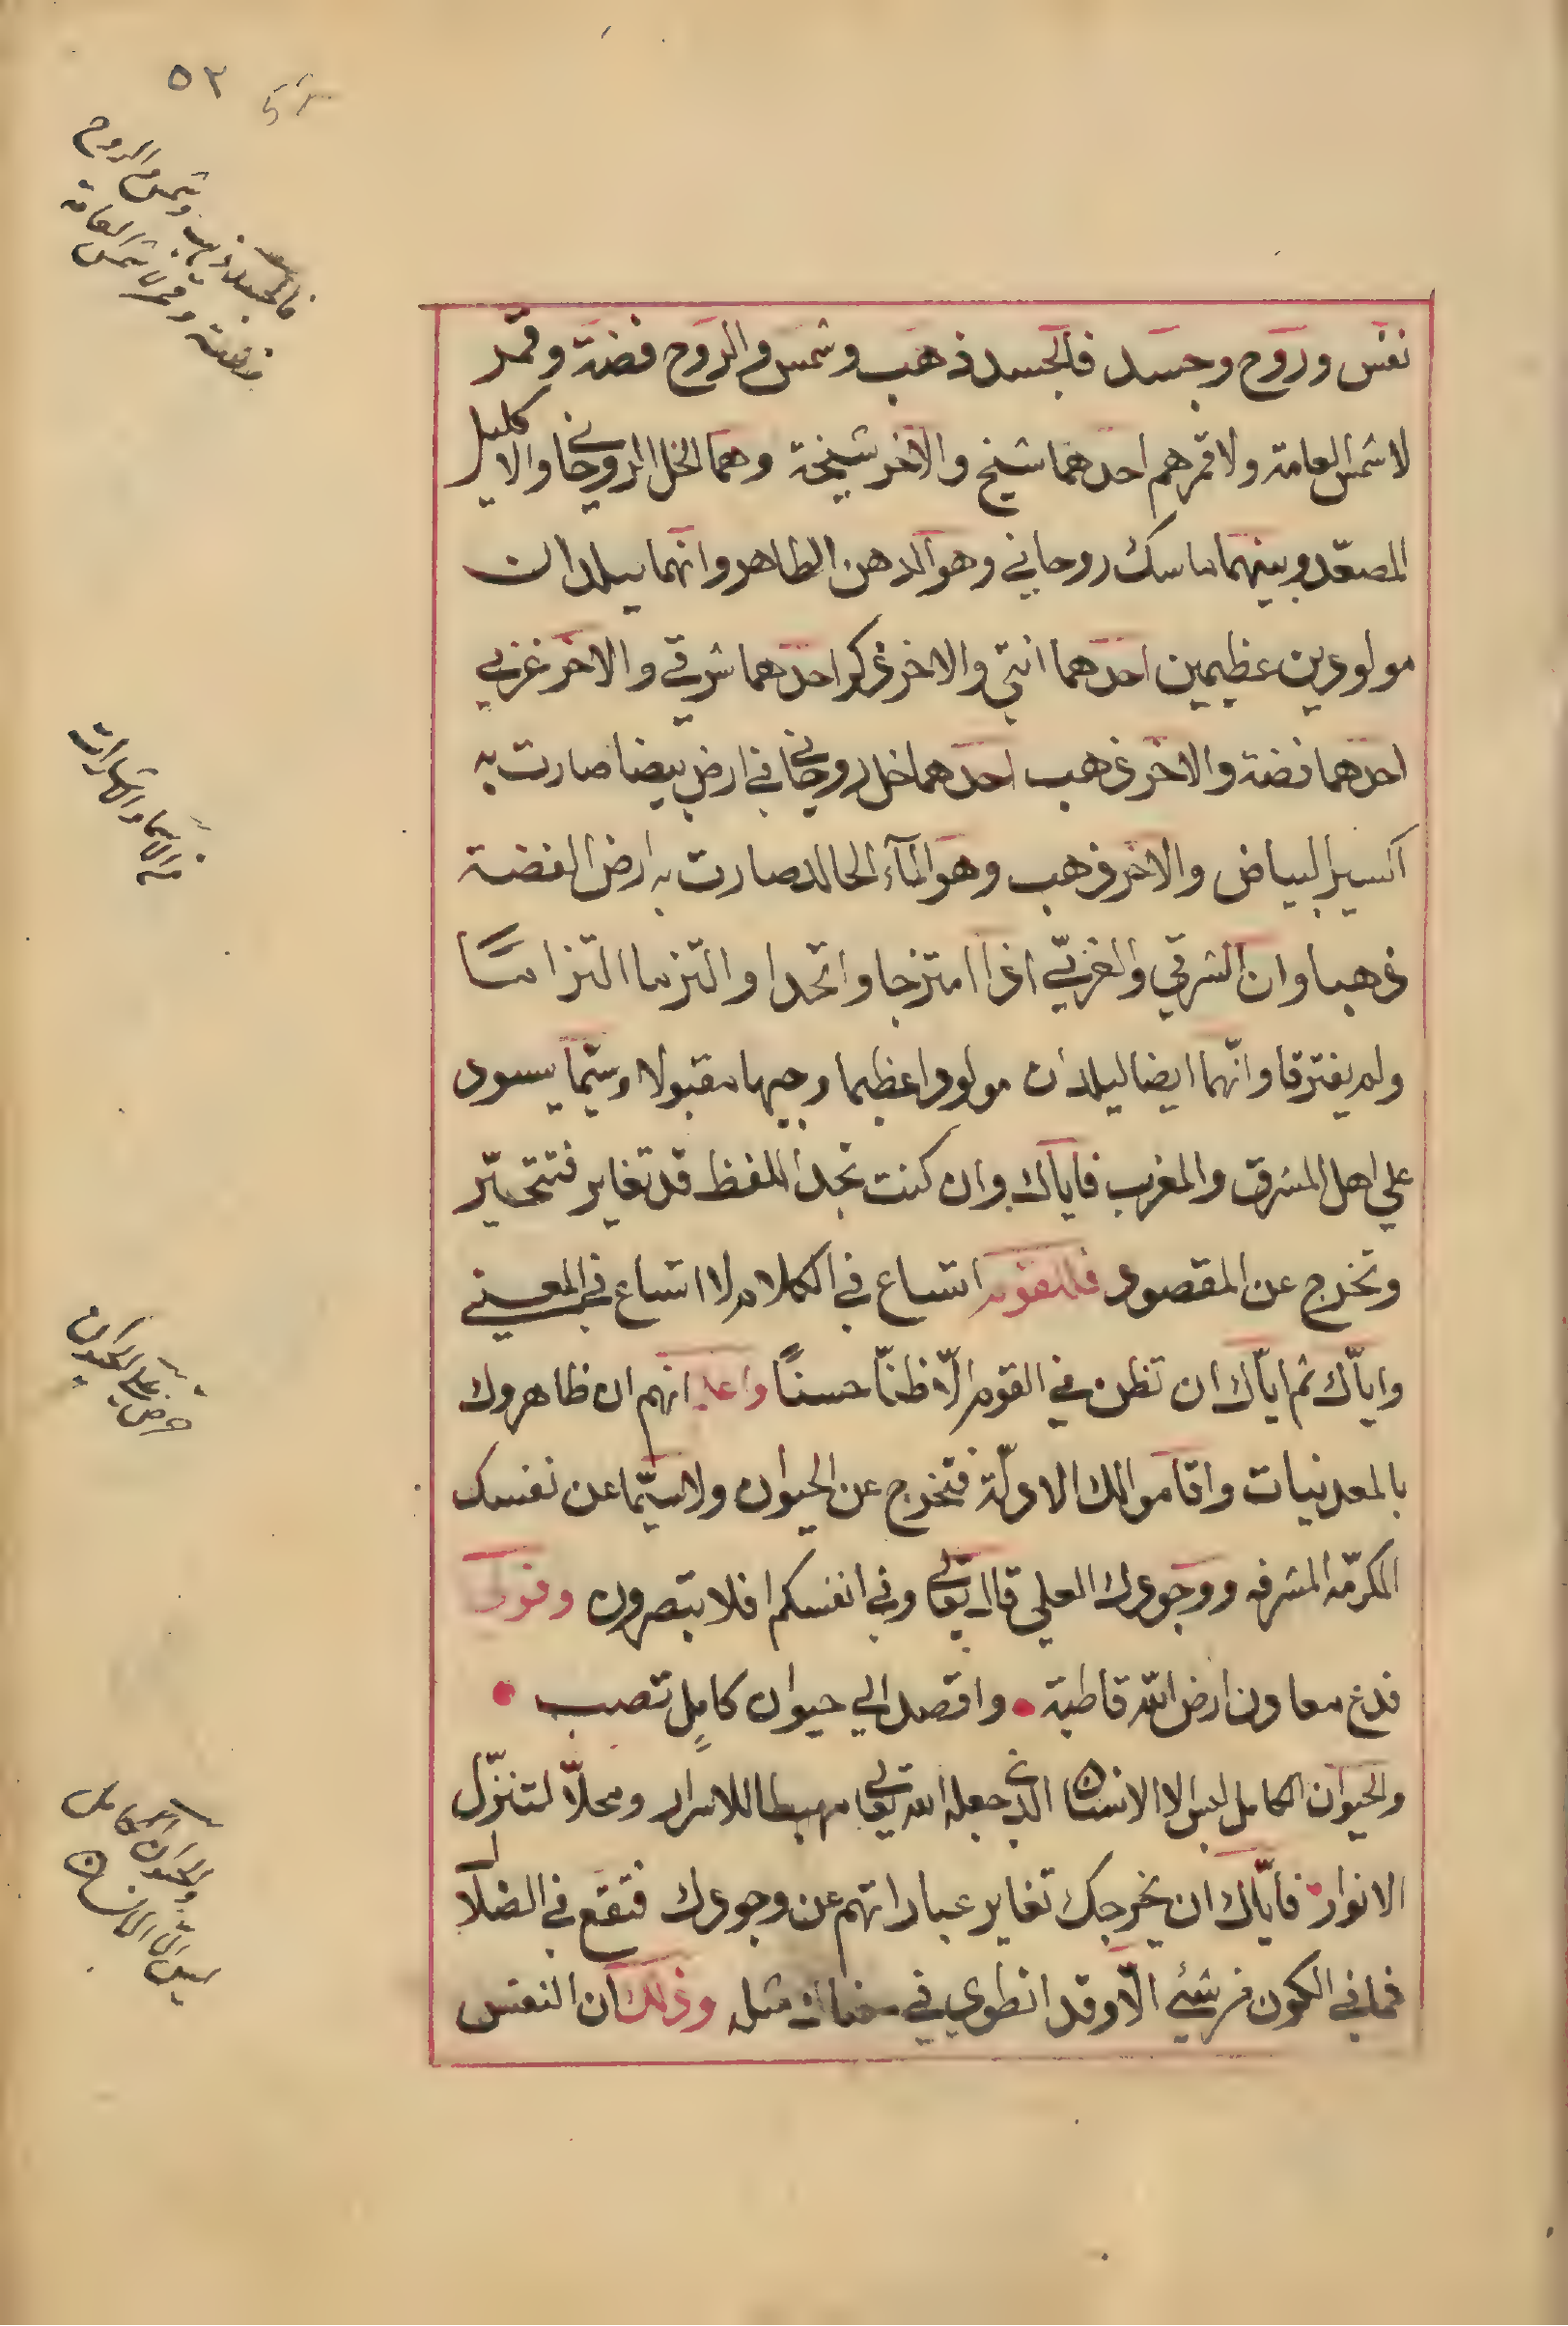 ٥٣
فالجسد ذهب وشمس والروح
فضة وقمر لا شمس العامة
نفس وروح وجسد فالجسد ذهب وشمس والروح فضة وقمر
لا شمس العامة ولا قمرهم احدهما شيخ والآخر شيخة وهما الخل الروحاني والاكليل
المصعّد وبينهما ماسك روحاني وهو الدهن الطاهر وانهما يلدان
مولودين عظيمين احدهما انثي والاخر ذكر احدهما شرقي والاخر غربي
احدهما فضة والاخر ذهب احدهما خل روحاني في ارض بيضا صارت به
اكسير البياض والاخر ذهب وهو المآء الخالد صارت به ارض الفضة
ذهبا وان الشرقي والغربيّ اذا امتزجا واتحدا والتزما التزاما
ولم يفترقا وانّهما ايضا ليلدان مولودا عظيما وجيها مقبولا وسيّما يسود
علي اهل المشرق والمغرب فاياك وان كنت تجد اللفظ قد تغاير فتتحيّر
وتخرج عن المقصود فللقوم اتساع في الكلام لا اتساع في المعني
واياّك ثم اياّك ان تظن في القوم الّا ظنّا حسناً واعلم انهم ان ظاهروك
بالمعدنيات واقاموا لك الادلّة فتخرج عن الحيوان ولاسيّما عن نفسك
المكرّمه المشرفه ووجودك العلي قال تعالي وفي انفسكم افلا تبصرون
فدع معادن ارض الله قاطبة • واقصد الي حيوان كاملٍ تصب •
والحيوان الكامل ليس الا الانسان الذي جعله الله تعالي مهبطا للاسرار ومحلّا لتنزّل
الانوار فايّاك ان يخرجك تغاير عباراتهم عن وجودك فتقع في الضلال
فما في الكون من شئ الّا وقد انطوي في مثله وذلك ان النفس
والحيوان الكامل
ليس الا الانسان